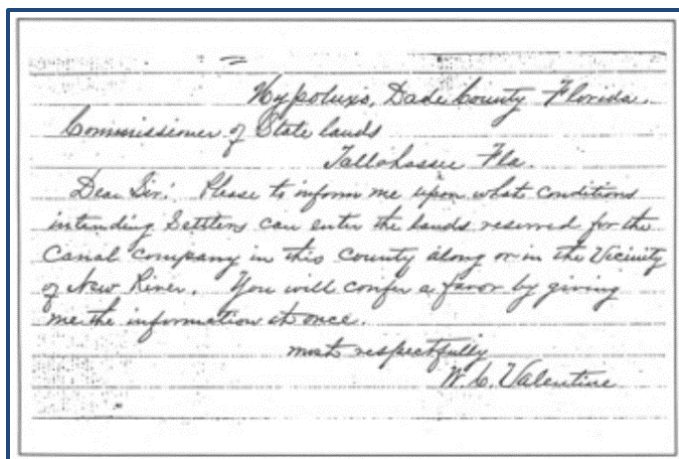 Hypoluxo, Dade County Florida.
Commissioner of State lands
Tallahassee Fla.
Dear Sir! Please to inform me upon what conditions
intending Settlers can enter the lands reserved for the
Canal company in this county along or in the Vicinity
of New River. You will confer a favor by giving
me the information at once.
most respectfully
W. C. Valentine